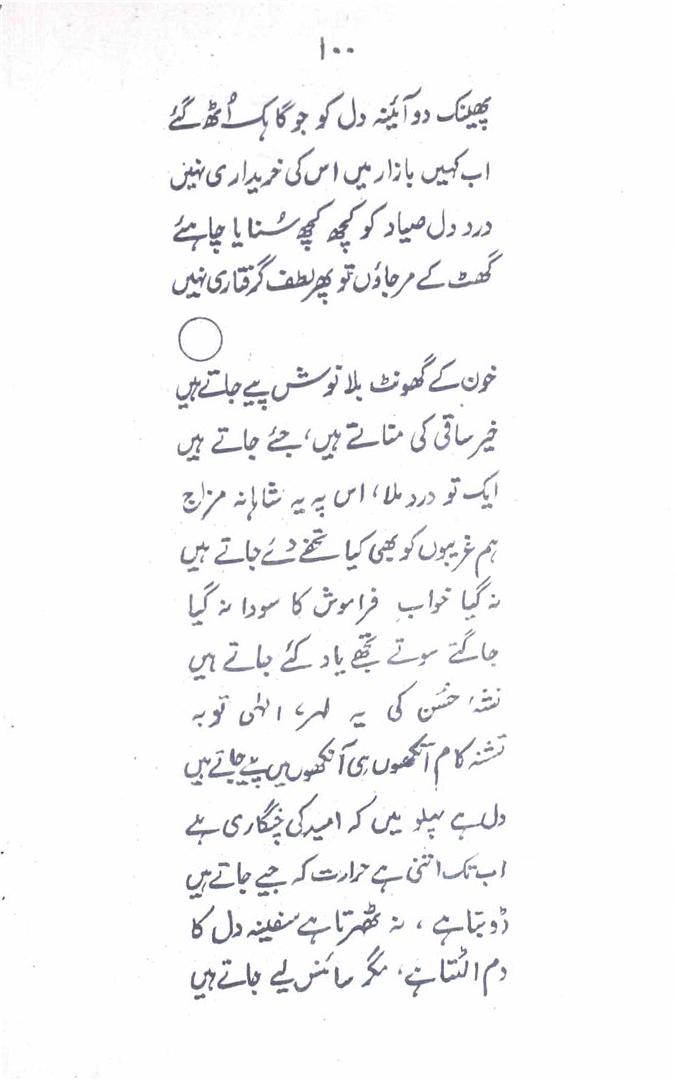 ۱۰۰
پھینک دو آئینہ دل کو جو گاہک اُٹھ گئے
اب کہیں بازار میں اس کی خریداری نہیں
درد دل صیاد کو کچھ کچھ سُنایا چاہئے
گھٹ کے مر جاؤں تو پھر لطف گرفتاری نہیں
خون کے گھونٹ بلا نوش پیے جاتے ہیں
خیر ساقی کی مناتے ہیں، جئے جاتے ہیں
ایک تو درد ملا، اس پہ یہ شاہانہ مزاج
ہم غریبوں کو بھی کیا تحفے دئے جاتے ہیں
نہ گیا خوابِ فراموش کا سودا نہ گیا
جاگتے سوتے تجھے یاد کئے جاتے ہیں
نشۂ حُسن کی یہ لہر، الٰہی توبہ
تشنہ کام آنکھوں ہی آنکھوں میں پئے جاتے ہیں
دل ہے پہلو میں کہ امید کی چنگاری ہے
اب تک اتنی ہے حرارت کہ جیے جاتے ہیں
ڈوبتا ہے، نہ ٹھہرتا ہے سفینہ دل کا
دم الٹتا ہے، مگر سانس لیے جاتے ہیں